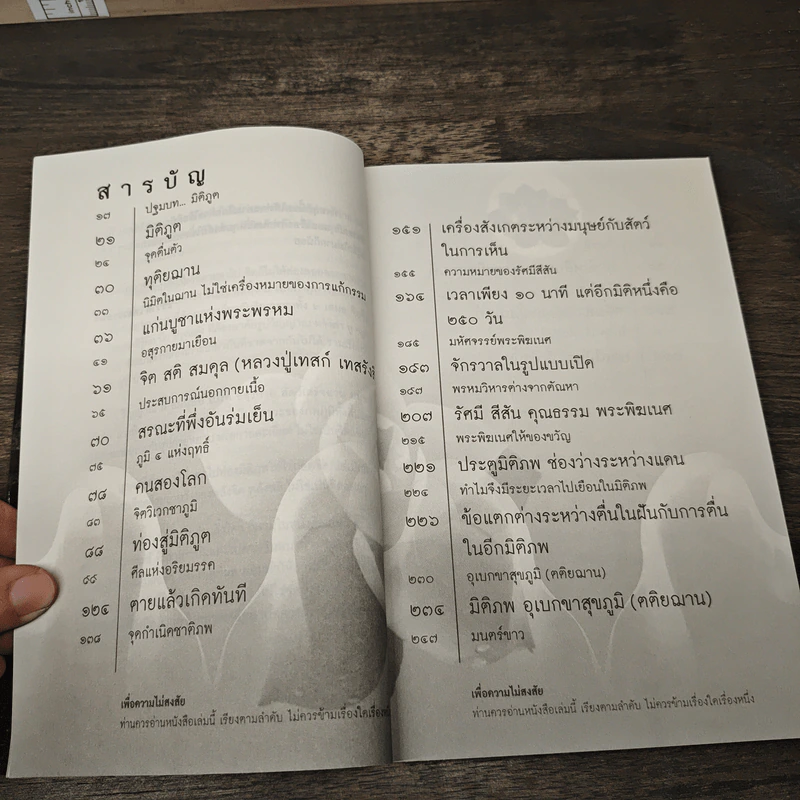 สารบัญ
๑๗ ปฐมบท... มิติภูต
๒๑ มิติภูต
๒๔ จุดตื่นตัว
๓๐ ทุติยฌาน
๓๓ นิมิตในฌาน ไม่ใช่เครื่องหมายของการแก้กรรม
๓๖ แก่นบูชาแห่งพระพรหม
๔๑ อสุรกายมาเยือน
๖๑ จิต สติ สมดุล (หลวงปู่เทสก์ เทสรังสี
๖๕ ประสบการณ์นอกกายเนื้อ
๗๐ สรณะที่พึ่งอันร่มเย็น
๗๕ ภูมิ ๔ แห่งฤทธิ์
๗๘ คนสองโลก
๘๓ จิตวิเวกชาภูมิ
๘๘ ท่องสู่มิติภูต
๙๙ ศีลแห่งอริยมรรค
๑๒๔ ตายแล้วเกิดทันที
๑๓๘ จุดกำเนิดชาติภพ
เพื่อความไม่สงสัย
ท่านควรอ่านหนังสือเล่มนี้ เรียงตามลำดับ ไม่ควรข้ามเรื่องใดเรื่อง
๑๕๑ เครื่องสังเกตระหว่างมนุษย์กับสัตว์
ในการเห็น
๑๕๕ ความหมายของรัศมีสีสัน
๑๖๔ เวลาเพียง ๑๐ นาที แต่อีกมิติหนึ่งคือ
๒๕๐ วัน
๑๘๕ มหัศจรรย์พระพิฆเนศ
๑๙๓ จักรวาลในรูปแบบเปิด
๑๙๗ พรหมวิหารต่างจากตัณหา
๒๐๗ รัศมี สีสัน คุณธรรม พระพิฆเนศ
๒๑๕ พระพิฆเนศให้ของขวัญ
๒๒๑ ประตูมิติภพ ช่องว่างระหว่างแดน
๒๒๔ ทำไมจึงมีระยะเวลาไปเยือนในมิติภพ
๒๒๖ ข้อแตกต่างระหว่างตื่นในฝันกับการตื่น
ในอีกมิติภพ
๒๓๐ อุเบกขาสุขภูมิ (ตติยฌาน)
๒๓๔ มิติภพ อุเบกขาสุขภูมิ (ตติยฌาน)
๒๔๗ มนตร์ขาว
เพื่อความไม่สงสัย
ท่านควรอ่านหนังสือเล่มนี้ เรียงตามลำดับ ไม่ควรข้ามเรื่องใดเรื่องหนึ่ง